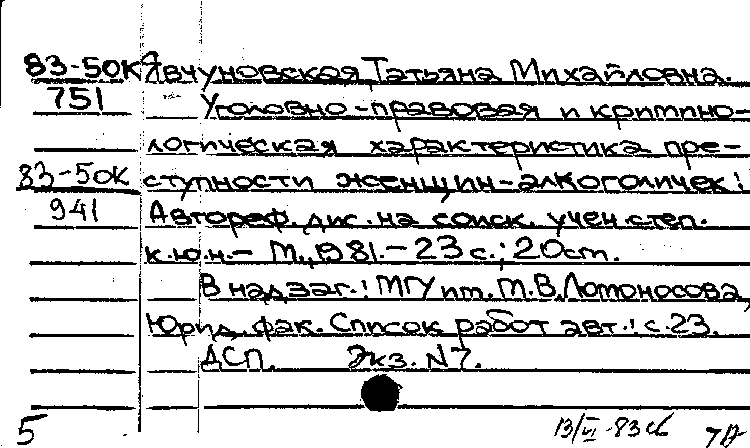 83-50К Явчуновская Татьяна Михайловна.
751 Уголовно-правовая и кримино-
логическая характеристика пре-
83-50К ступности женщин-алкоголичек:
941 Автореф. дис. на соиск. учен. степ.
к.ю.н.- М., 1981.- 23 с.; 20 cm.
В надзаг.: МГУ им. М.В. Ломоносова,
Юрид. фак. Список работ авт.: с. 23.
ДСП. Экз. N 7.
5 13/VI-83